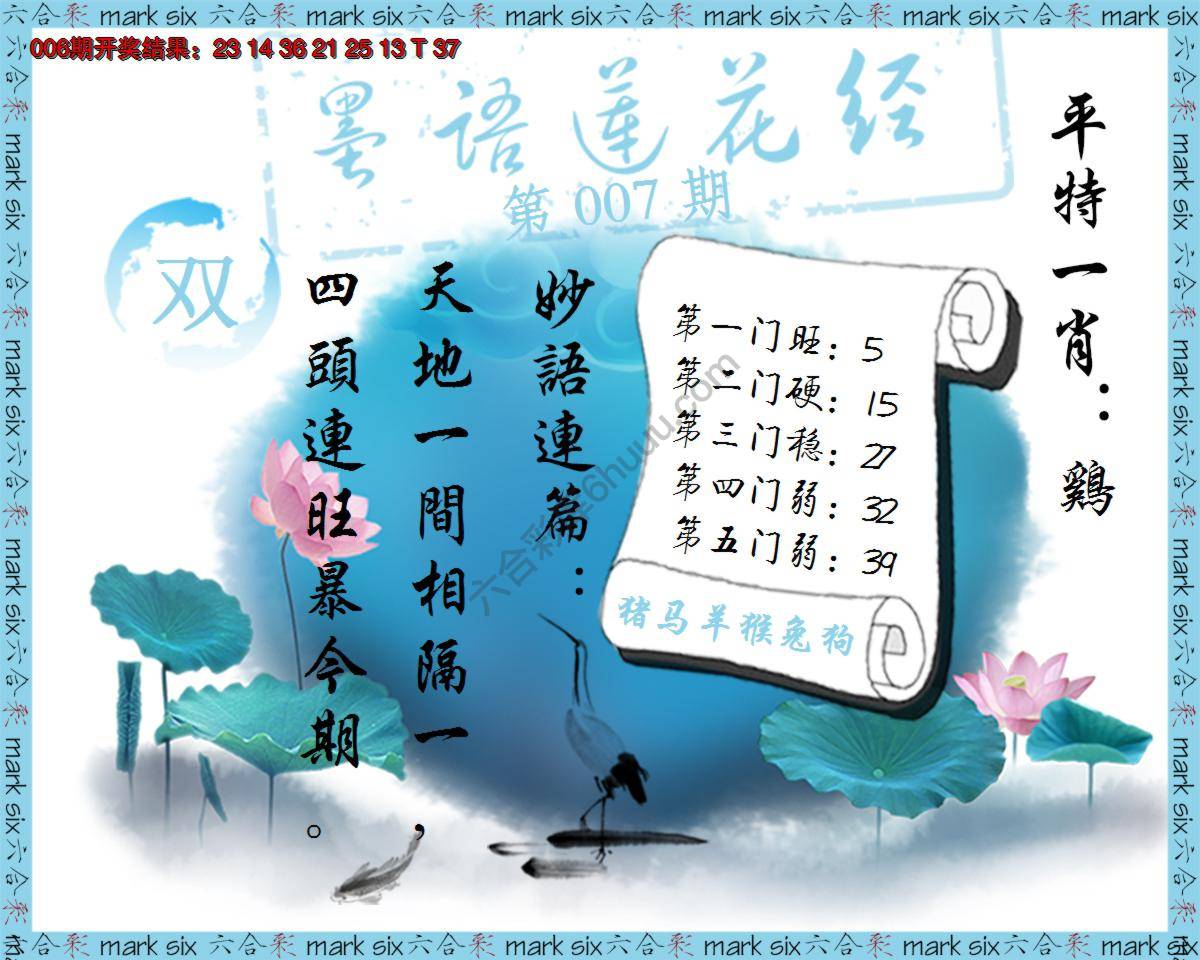 六合彩 mark six 六合彩 mark six 六合彩 mark six 六合彩 mark six 六合彩 mark six 六合彩 mark six
006期开奖结果：23 14 36 21 25 13 T 37
墨语莲花经
第 007 期
双
平特一肖：鷄
妙語連篇：
天地一間相隔一，
四頭連旺暴今期。
第一门旺：5
第二门硬：15
第三门稳：27
第四门弱：32
第五门弱：39
猪马羊猴兔狗
六合彩 mark six 六合彩 mark six 六合彩 mark six 六合彩 mark six 六合彩 mark six 六合彩 mark six